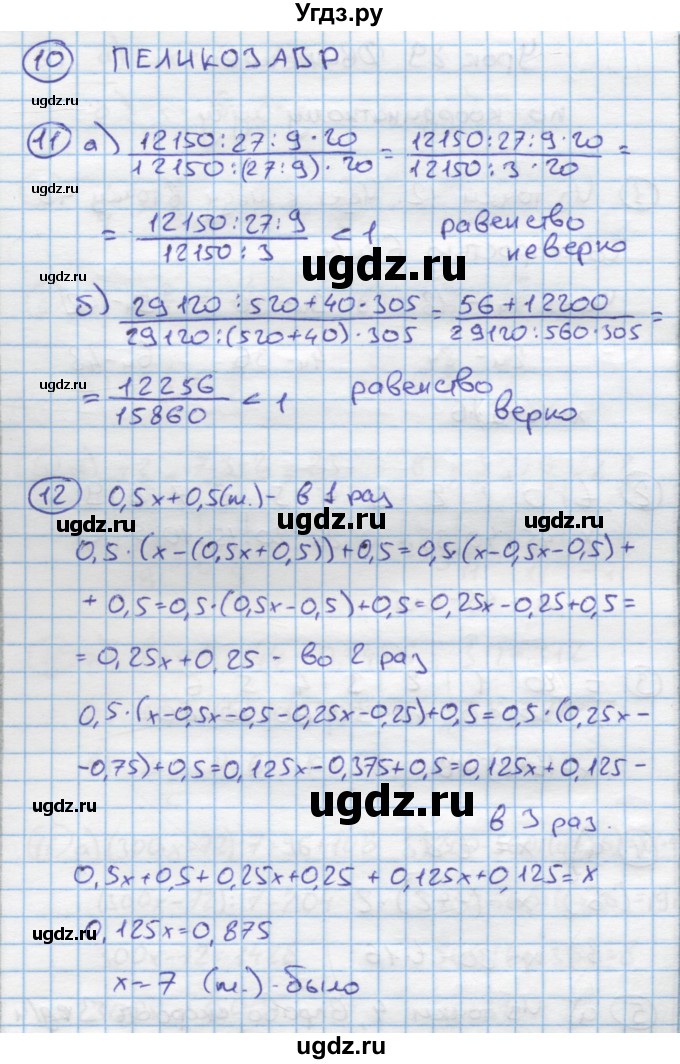 Угдз.ру
10 ПЕЛИКОЗАВР
ugdz.ru ugdz.ru
11 а) 12150:27:9·20 / 12150:(27:9)·20 = 12150:27:9·20 / 12150:3·20 =
= 12150:27:9 / 12150:3 < 1 равенство
неверно
ugdz.ru ugdz.ru ugdz.ru
б) 29120:520+40·305 / 29120:(520+40)·305 = 56+12200 / 29120:560·305 =
= 12256 / 15860 < 1 равенство
верно
ugdz.ru ugdz.ru
12 0,5x+0,5(т.) - в 1 раз
ugdz.ru ugdz.ru ugdz.ru
0,5·(x-(0,5x+0,5))+0,5=0,5·(x-0,5x-0,5)+
+0,5=0,5·(0,5x-0,5)+0,5=0,25x-0,25+0,5=
= 0,25x+0,25 - во 2 раз
ugdz.ru ugdz.ru
0,5·(x-0,5x-0,5-0,25x-0,25)+0,5=0,5·(0,25x-
-0,75)+0,5=0,125x-0,375+0,5=0,125x+0,125-
ugdz.ru ugdz.ru ugdz.ru
в 3 раз.
0,5x+0,5+0,25x+0,25+0,125x+0,125=x
0,125x=0,875
ugdz.ru ugdz.ru
x=7 (т.) - было